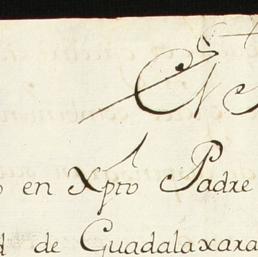 en Xpto Padre
de Guadalaxara